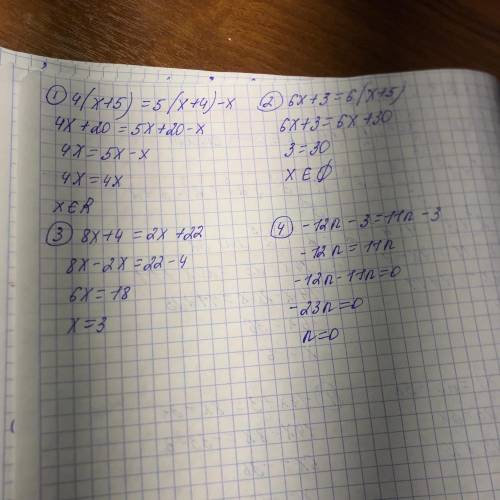 ① 4(x+5)=5(x+4)-x
4x+20=5x+20-x
4x=5x-x
4x=4x
x∈R
② 6x+3=6(x+5)
6x+3=6x+30
3=30
x∈∅
③ 8x+4=2x+22
8x-2x=22-4
6x=18
x=3
④ -12n-3=11n-3
-12n=11n
-12n-11n=0
-23n=0
n=0